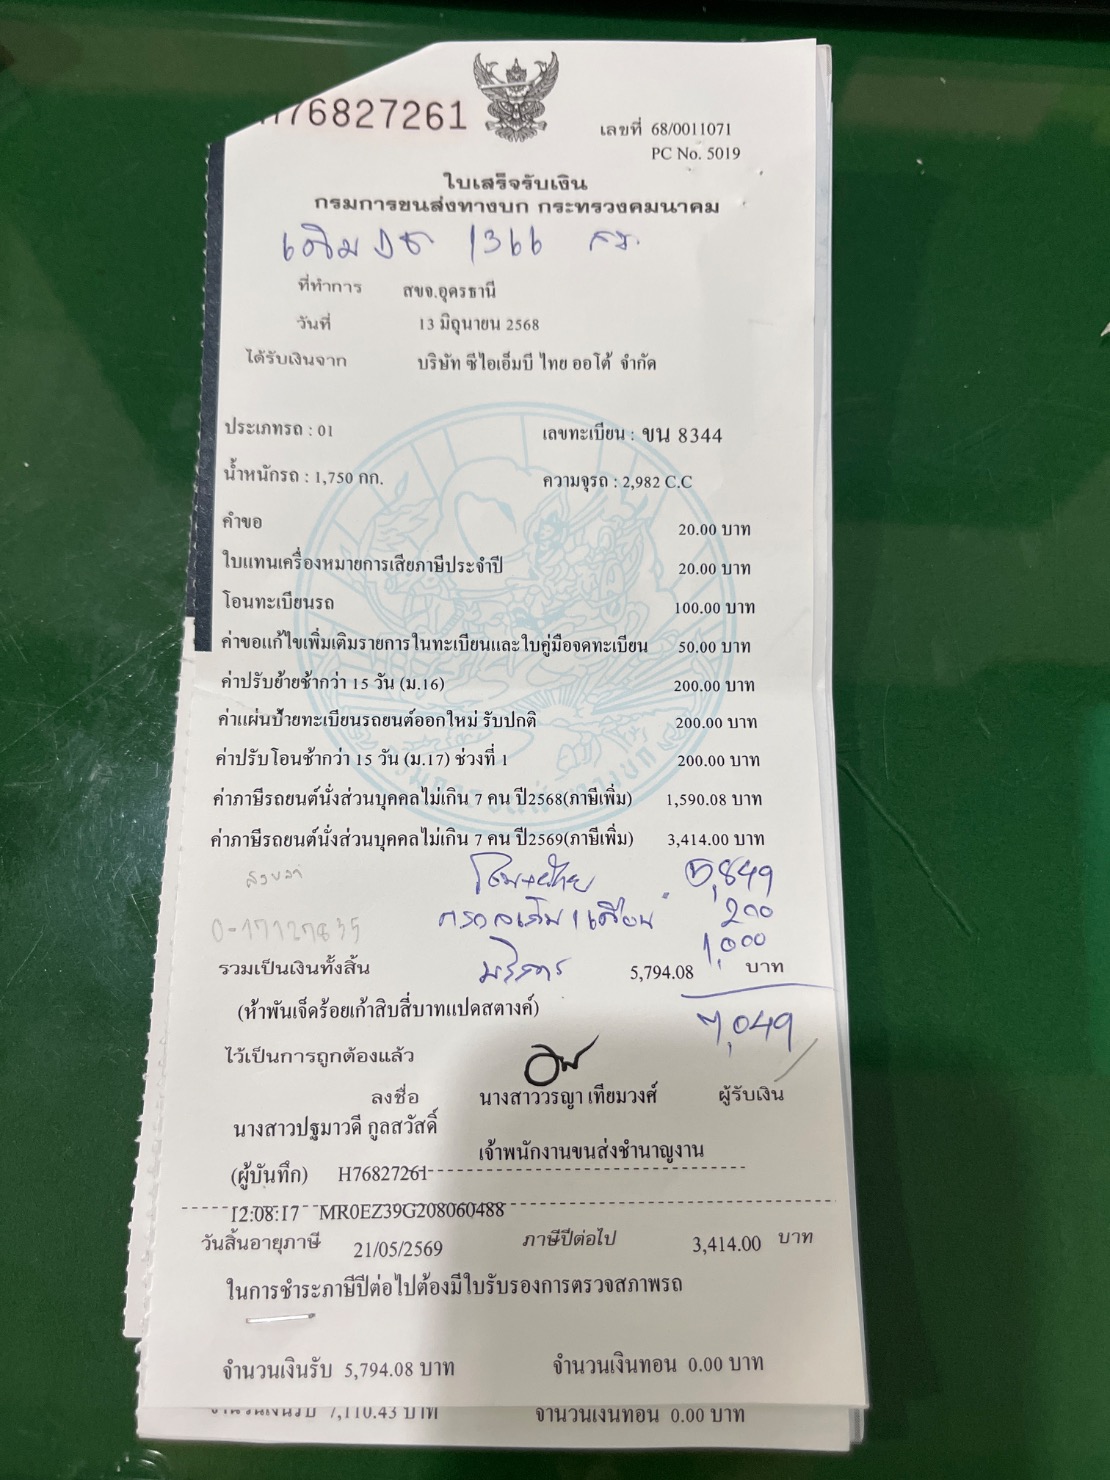 76827261
เลขที่ 68/0011071
PC No. 5019
ใบเสร็จรับเงิน
กรมการขนส่งทางบก กระทรวงคมนาคม
เดิม 1366
ที่ทำการ สขจ.อุดรธานี
วันที่ 13 มิถุนายน 2568
ได้รับเงินจาก บริษัท ซีไอเอ็มบี ไทย ออโต้ จำกัด
ประเภทรถ : 01 เลขทะเบียน : ขน 8344
น้ำหนักรถ : 1,750 กก. ความจุรถ : 2,982 C.C
คำขอ 20.00 บาท
ใบแทนเครื่องหมายการเสียภาษีประจำปี 20.00 บาท
โอนทะเบียนรถ 100.00 บาท
ค่าขอแก้ไขเพิ่มเติมรายการในทะเบียนและใบคู่มือจดทะเบียน 50.00 บาท
ค่าปรับย้ายช้ากว่า 15 วัน (ม.16) 200.00 บาท
ค่าแผ่นป้ายทะเบียนรถยนต์ออกใหม่ รับปกติ 200.00 บาท
ค่าปรับโอนช้ากว่า 15 วัน (ม.17) ช่วงที่ 1 200.00 บาท
ค่าภาษีรถยนต์นั่งส่วนบุคคลไม่เกิน 7 คน ปี2568(ภาษีเพิ่ม) 1,590.08 บาท
ค่าภาษีรถยนต์นั่งส่วนบุคคลไม่เกิน 7 คน ปี2569(ภาษีเพิ่ม) 3,414.00 บาท
5,849
200
1,000
บริการ
รวมเป็นเงินทั้งสิ้น 5,794.08 บาท
(ห้าพันเจ็ดร้อยเก้าสิบสี่บาทแปดสตางค์)
7,049
ไว้เป็นการถูกต้องแล้ว
ลงชื่อ นางสาววรญา เทียมวงศ์ ผู้รับเงิน
นางสาวปฐมาวดี กูลสวัสดิ์
เจ้าพนักงานขนส่งชำนาญงาน
(ผู้บันทึก) H76827261
12:08:17 MR0EZ39G208060488
วันสิ้นอายุภาษี 21/05/2569 ภาษีปีต่อไป 3,414.00 บาท
ในการชำระภาษีปีต่อไปต้องมีใบรับรองการตรวจสภาพรถ
จำนวนเงินรับ 5,794.08 บาท จำนวนเงินทอน 0.00 บาท
จำนวนเงินรับ 7,110.43 บาท จำนวนเงินทอน 0.00 บาท